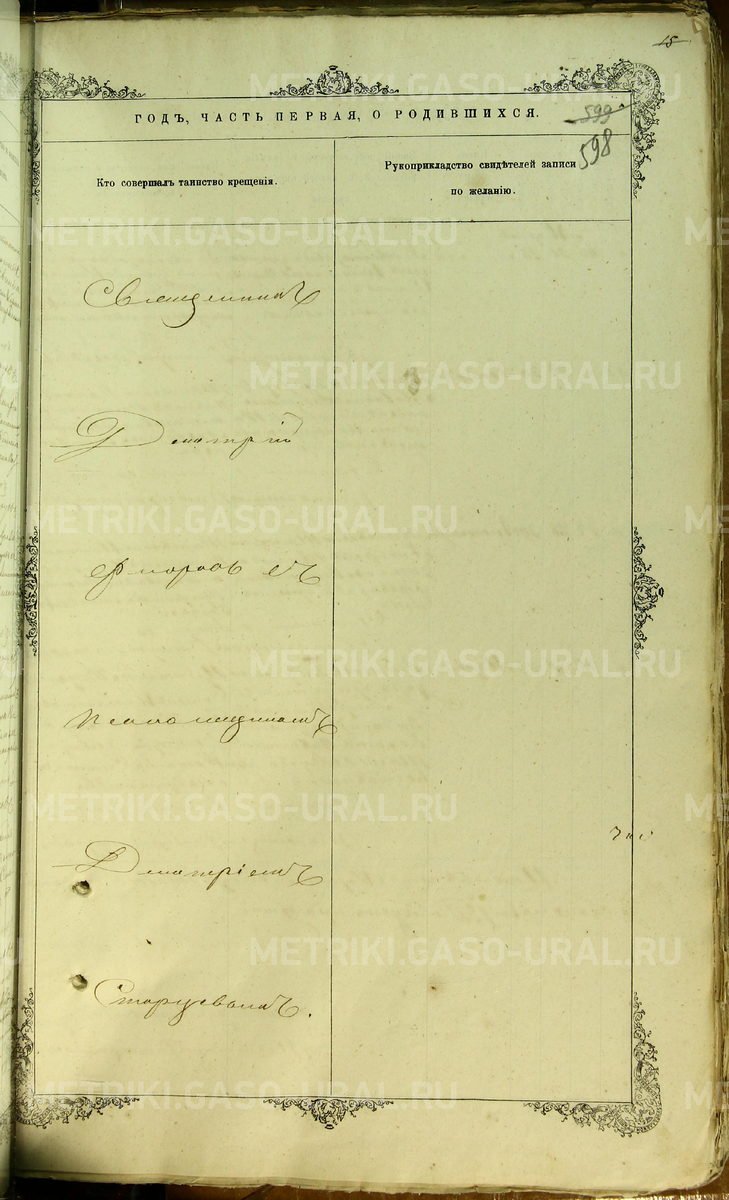 15
ГОДЪ, ЧАСТЬ ПЕРВАЯ, О РОДИВШИХСЯ.
599
598
Кто совершалъ таинство крещенія.
Рукоприкладство свидѣтелей записи
по желанію.
Священникъ
Дмитрій
съ
псаломщикомъ
Дмитріемъ
Старцевымъ.
METRIKI.GASO-URAL.RU